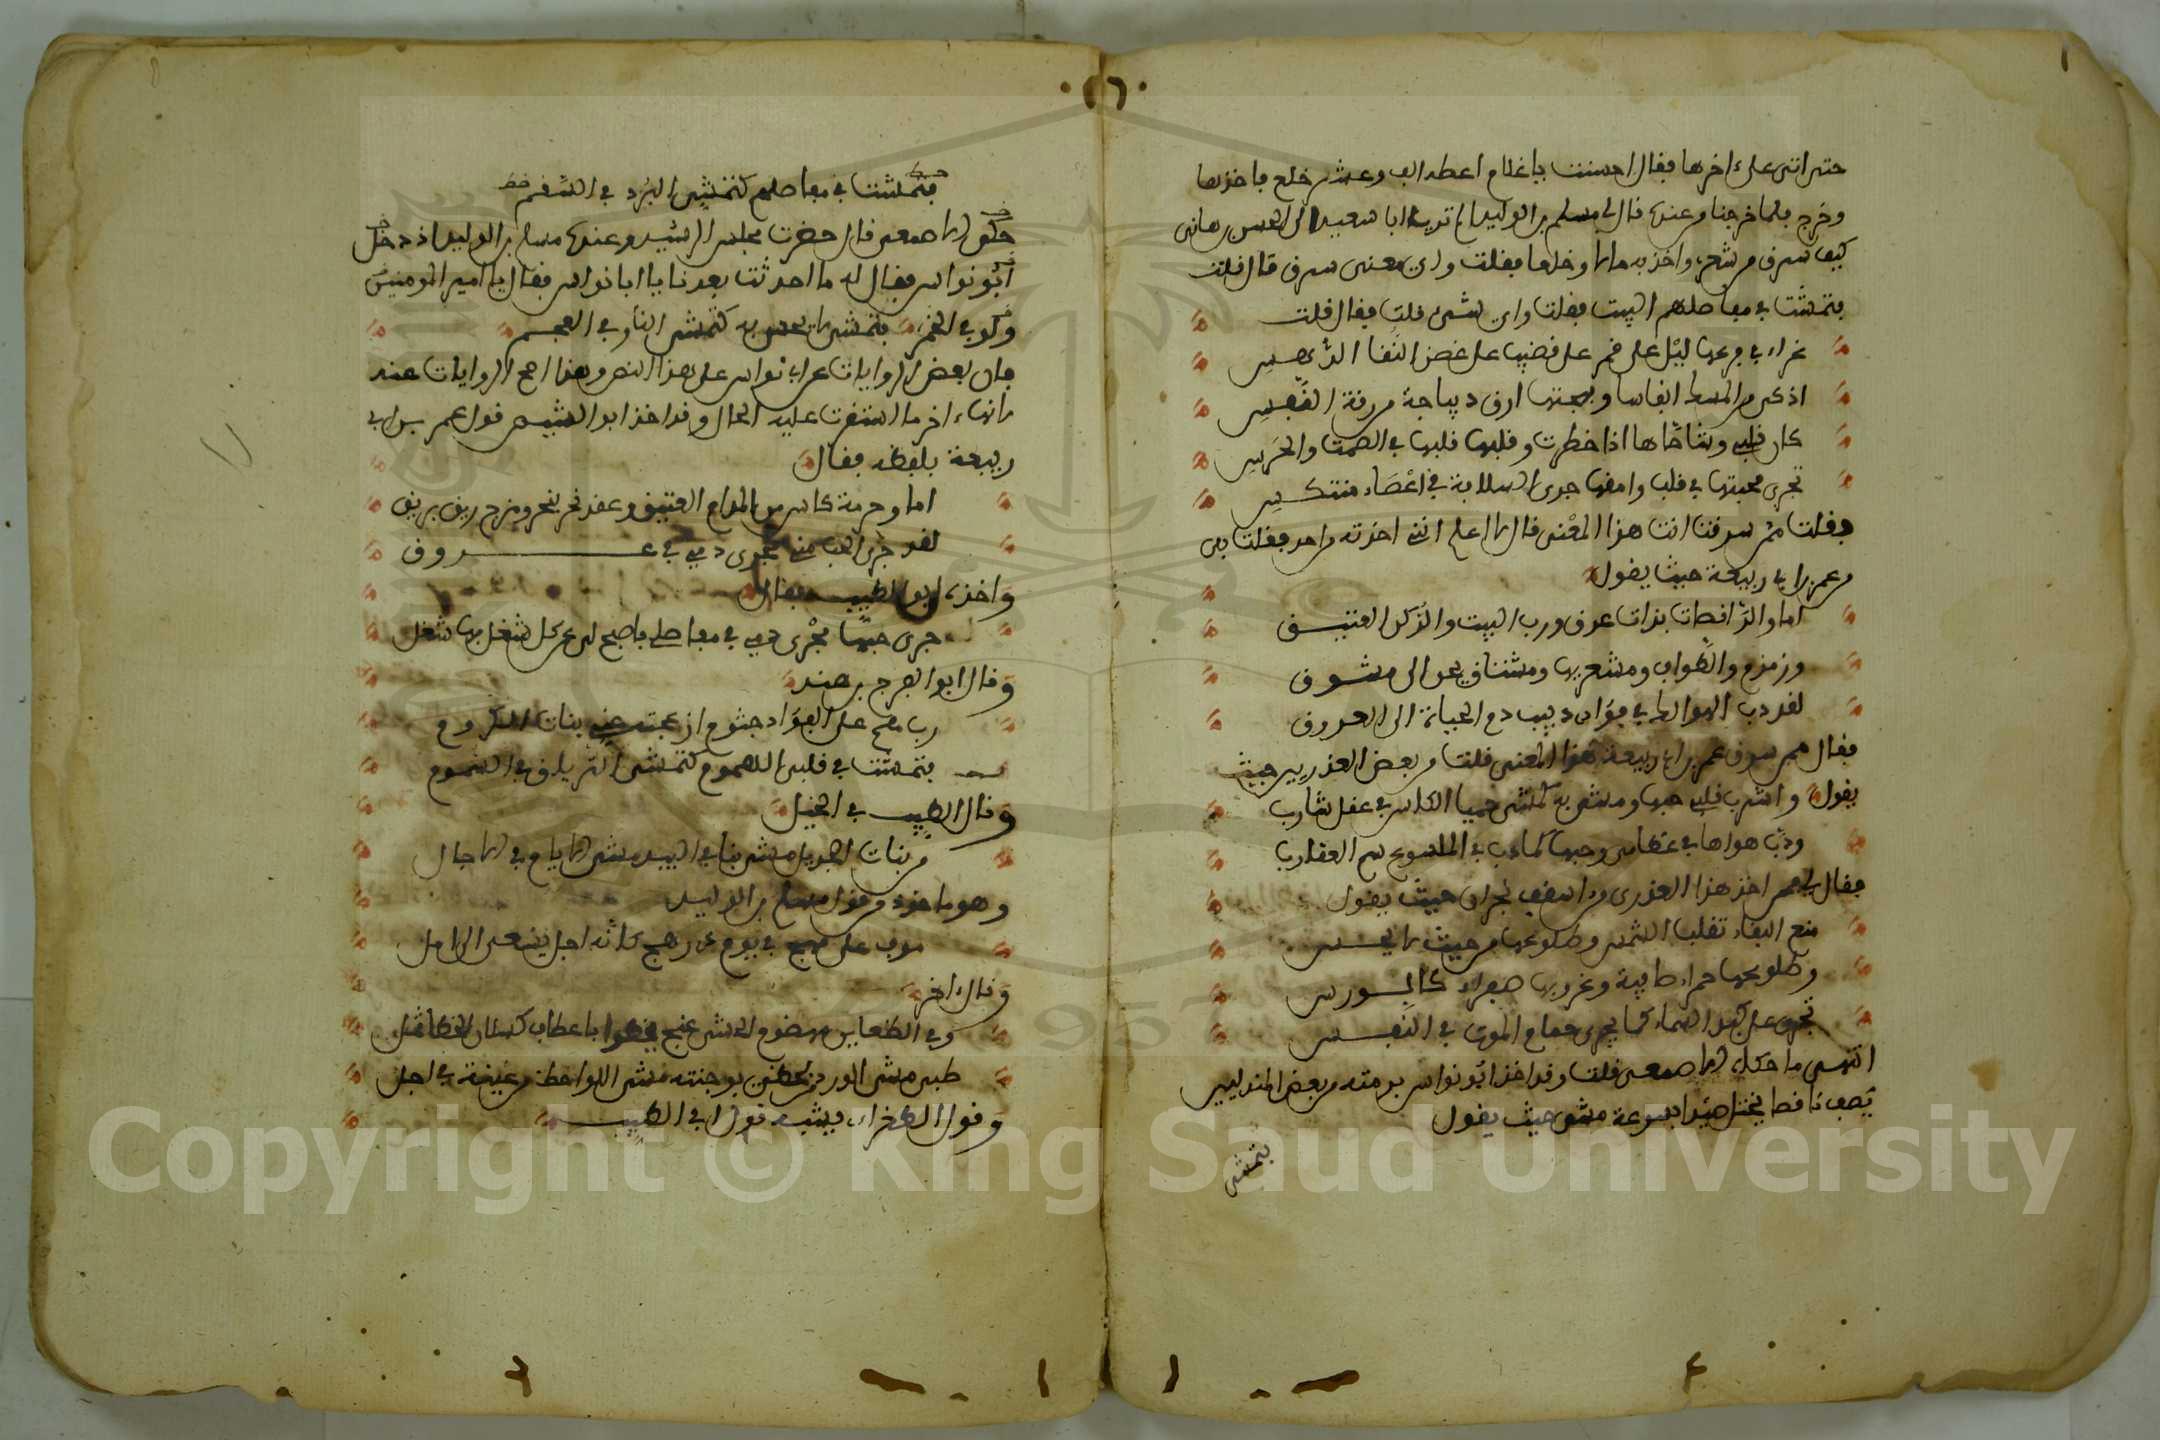 حتى اتى على اخرها فقال احسنت يا غلام اعطه الف وعشر خلع فاخذها
وخرج فلما خرجنا من عنده قال لي مسلم بن الوليد الم تر يا ابا سعيد الى الحسن بن هانى
كيف سرق من شعري واخذ به مالا وخلعا فقلت واي معنى سرق قال قلت
فتمشت في مفاصلهم البيت فقلت واي شىء قلت فقال قلت
غراء في فرعها ليل على قمر على قضيب على غصن النقا الدهس
اذكى من المسك انفاسا وبهجتها ارق ديباجة من رقة النفس
كان قلبي وشاحاها اذا خطرت وقلبها قلبها في الصمت والخرس
تجري محبتها في قلب وامقها جري السلابة في اعضاء منتكس
فقلت ممن سرقت انت هذا المعنى قال لا اعلم انني اخذته من احد فقلت بلى
من عمر بن ابي ربيعة حيث يقول
اما والراقصات بذات عرق ورب البيت والركن العتيق
وزمزم والطواف ومشعريها ومشتاق يحن الى مشوق
لقد دب الهوى لك في فؤادي دبيب دم الحياة الى العروق
فقال ممن سرق عمر بن ابي ربيعة هذا المعنى فقلت من بعض العذريين حيث
يقول واشرب قلبي حبها ومشى به كمشي حميا الكاس في عقل شارب
ودب هواها في عظامي وحبها كما دب في الملسوع سم العقارب
فقال لي ممن اخذ هذا العذري من اسقف نجران حيث يقول
منع البقاء تقلب الشمس وطلوعها من حيث لا تمسي
وطلوعها حمراء صافية وغروبها صفراء كالورس
تجري على كبد السماء كما يجري حمام الموت في النفس
انتهى ما حكاه الاصمعي قلت وقد اخذ ابو نواس برمته من بعض الهذليين
يصف قانصا يختل صيدا بسرعة مشي حيث يقول
فتمشى
فتمشت في مفاصلهم كتمشي البرد في السقم
حكى الاصمعي قال حضرت مجلس الرشيد وعنده مسلم بن الوليد اذ دخل
ابو نواس فقال له ما احدثت بعدنا يا ابا نواس فقال يا امير المومنين
ولو في الخمر فتمشى لا يحس به كتمشي النار في الفحم
فان بعض الروايات عن ابي نواس على هذا النص وهذا اصح الروايات عند
لانهاء اخر ما استقرت عليه الحال وقد اخذ ابو الشيص قول عمر بن ابي
ربيعة بلفظه فقال
اما وحرمة كاس من المدام العتيق وعقد نحر بنحر ومزج ريق بريق
لقد جرى الحب مني مجرى دمي في عروق
واخذه ابو الطيب فقال
جرى حبها مجرى دمي في مفاصلي فاصبح لي عن كل شغل بها شغل
وقال ابو الفرج بن هندو
رب هم على الفؤاد جثوم ازعجته عني بنات الكروم
فتمشت في قلبي المهموم كتمشي الترياق في السموم
وقال الطيب في الخيل
من بنات الجديل مشي بنا في البيد مشي الايام في الاجال
وهو ماخوذ من قول مسلم بن الوليد
موف على مهج في يوم ذي رهج كانه اجل يسعى الى امل
وقال اخر
وفي الظعاين مهضوم الحشى غنج يخطوا باعطاف كسلان الخطا ثمل
ظبي مشى الورد من لحظي بوجنته مشي اللواحظ من عينيه في اجل
وقول الطغراء يشبه قول ابي الطيب